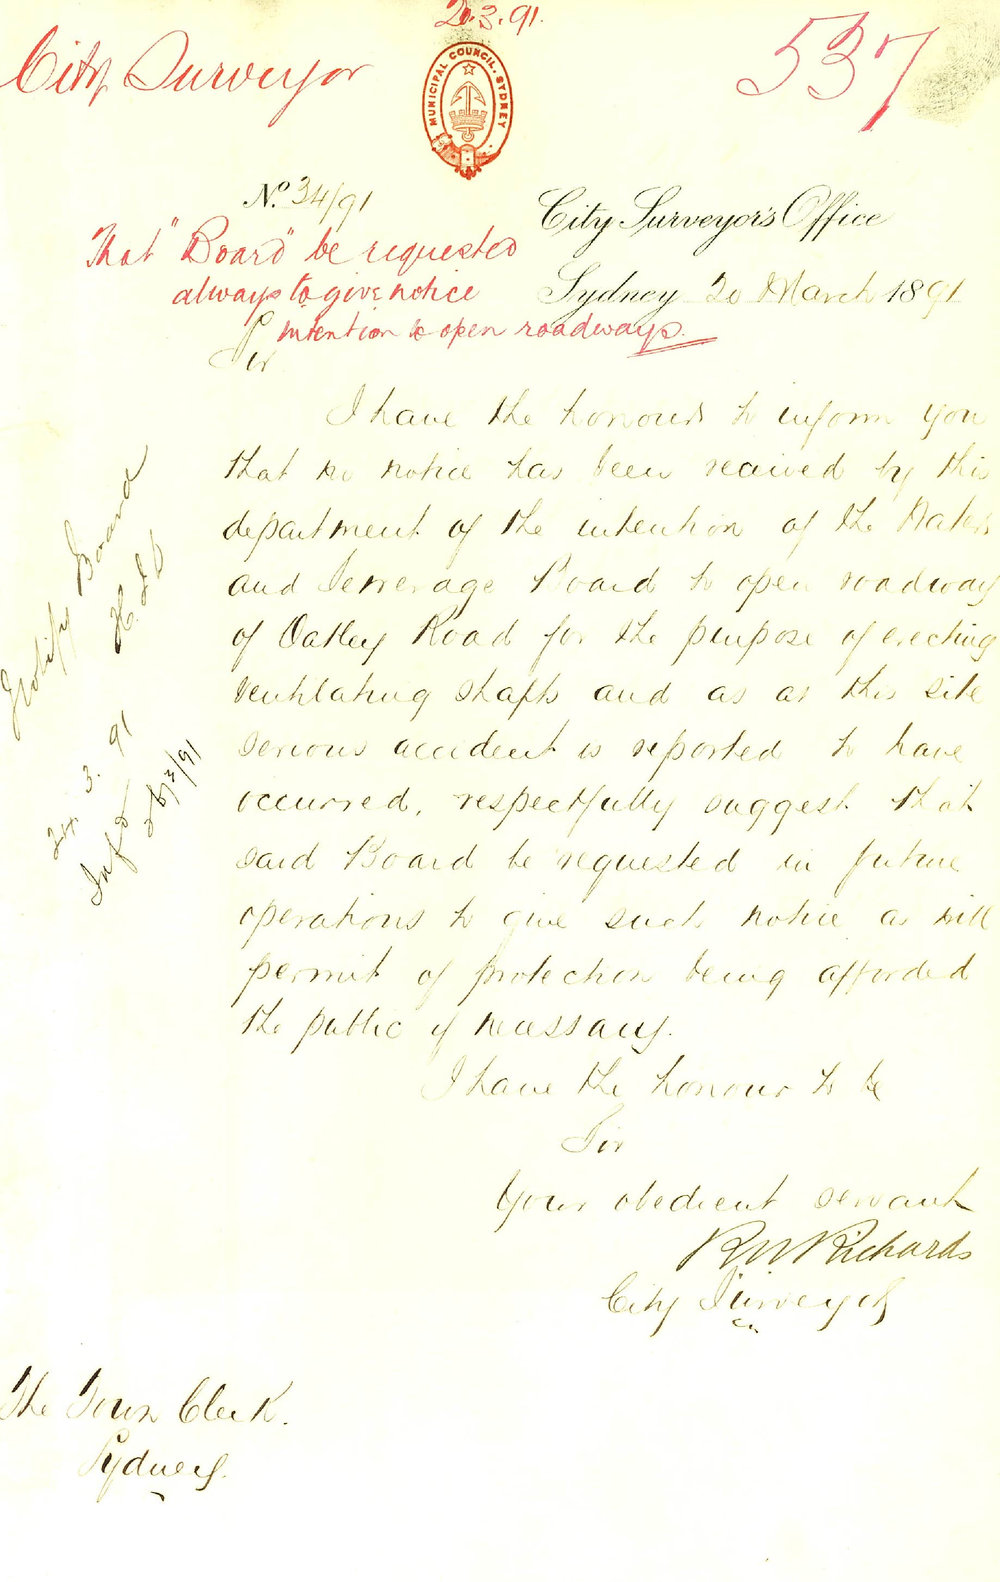 2.3.91.
City Surveyor
537
MUNICIPAL COUNCIL. SYDNEY
No. 34/91
City Surveyor's Office
That "Board" be requested
always to give notice
Sydney 20 March 1891
intention to open roadways.
Sir
I have the honour to inform you
that no notice has been received by this
department of the intention of the Water
and Sewerage Board to open roadway
of Oatley Road for the purpose of erecting
ventilating shafts and as at this site
serious accident is reported to have
occurred, respectfully suggest that
said Board be requested in future
operations to give such notice as will
permit of protection being afforded
the public if necessary.
I have the honour to be
Sir
Your obedient servant
RWRichards
City Surveyor
The Town Clerk.
Sydney.
Notify Board
3. 91
Infd